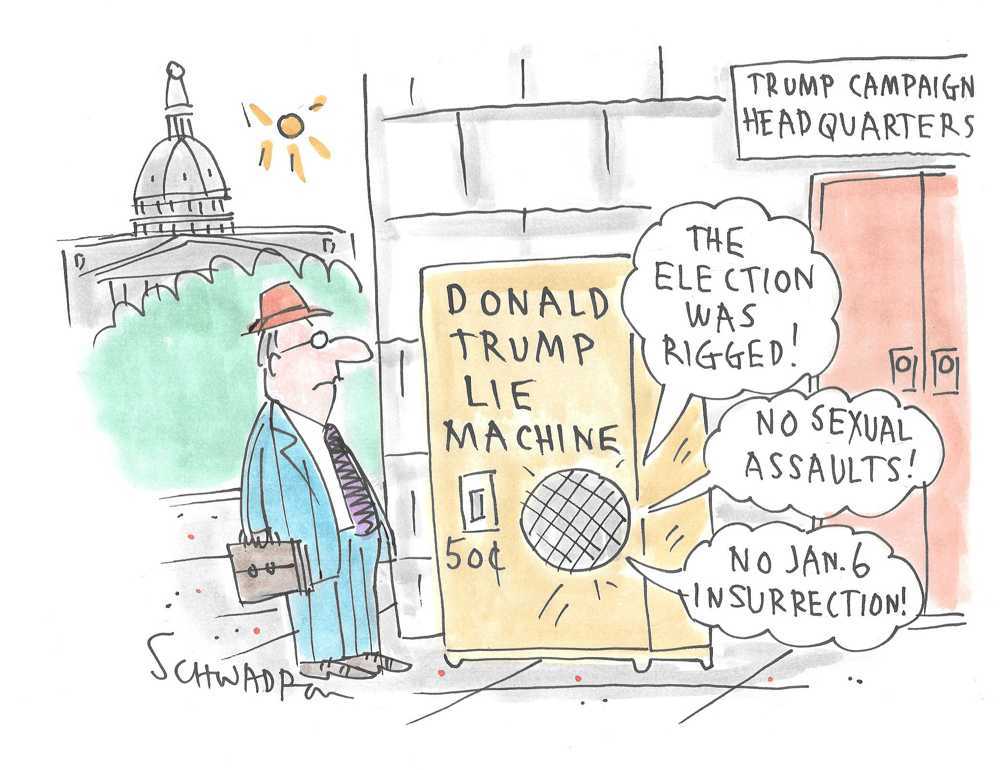 TRUMP CAMPAIGN
HEADQUARTERS
DONALD
TRUMP
LIE
MACHINE
50¢
THE
ELECTION
WAS
RIGGED!
NO SEXUAL
ASSAULTS!
NO JAN. 6
INSURRECTION!
SCHWADRON